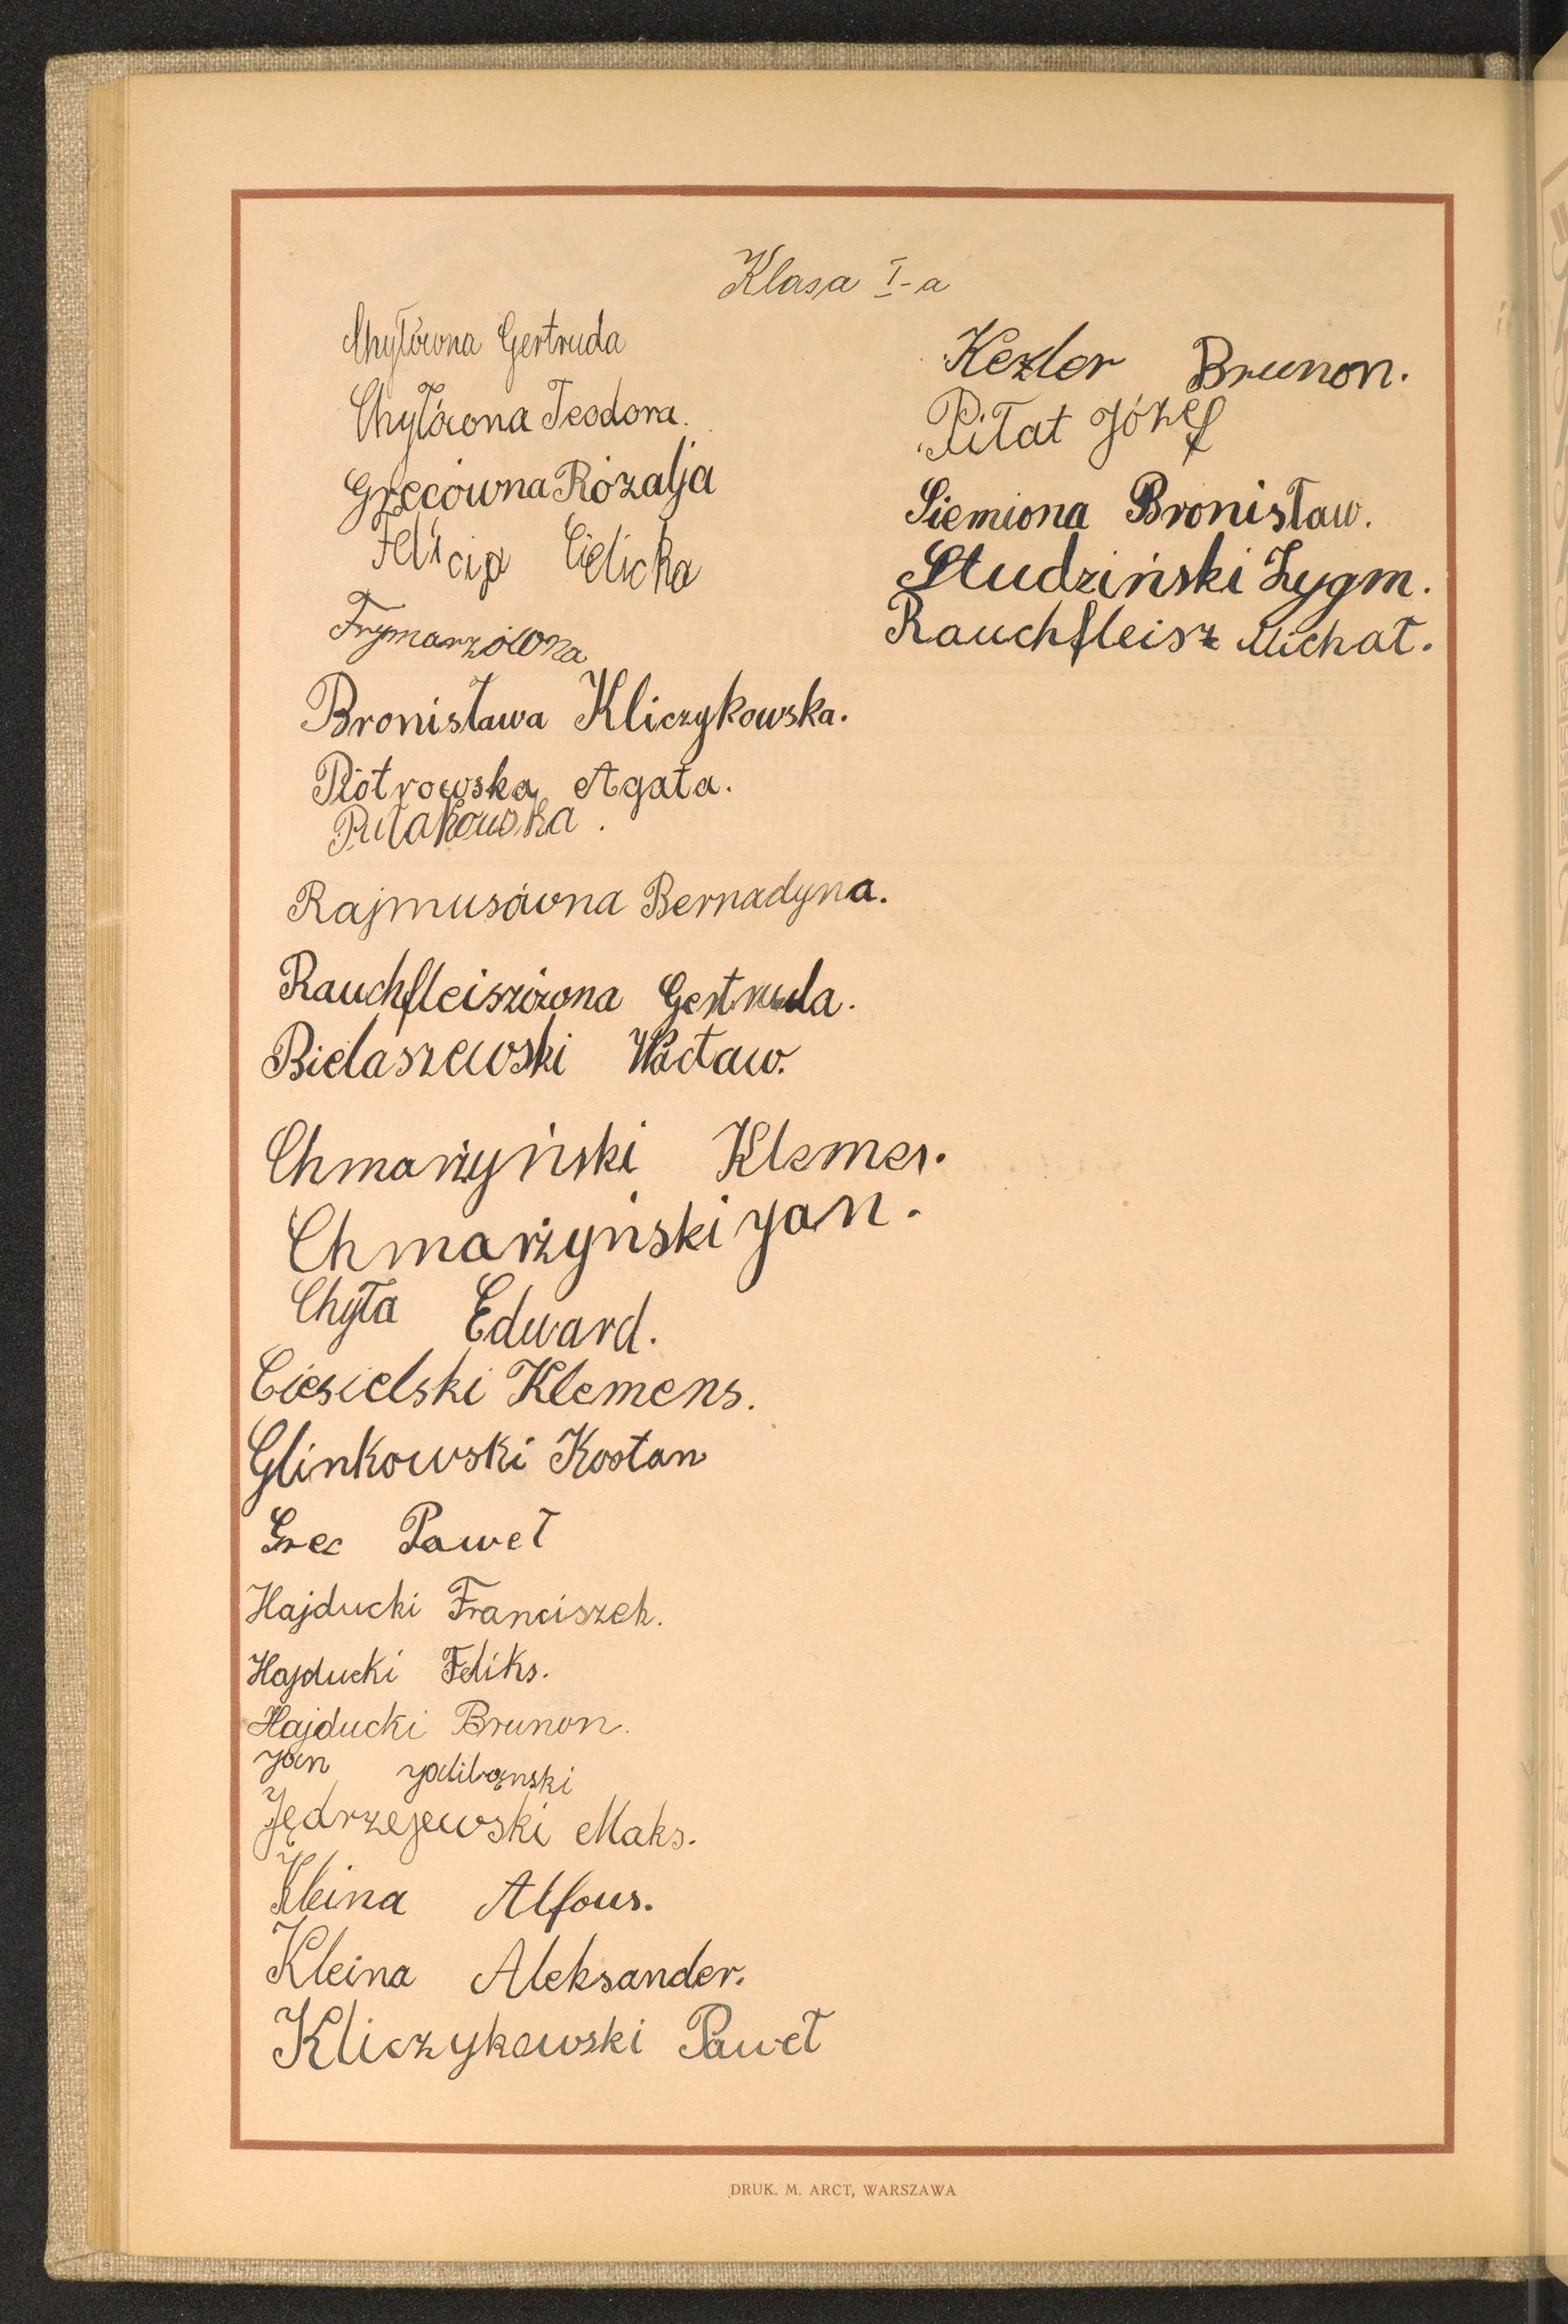 Klasa I-a
Chyłówna Gertruda
Chyłówna Teodora.
Grecówna Rózalja
Felicja Cielicka
Frymarzówna
Bronisława Kliczykowska.
Piotrowska Agata.
Rajmusówna Bernadyna.
Rauchfleiszówna Gertruda.
Bielaszewski Wacław.
Chmarżyński Klemes.
Chmarżyński Jan.
Chyła Edward.
Ciesielski Klemens.
Glinkowski Kostan
Grec Paweł
Hajducki Franciszek.
Hajducki Feliks.
Hajducki Brunon.
Jan
Jędrzejewski Maks.
Kleina Alfons.
Kleina Aleksander.
Kliczykowski Paweł
Kezler Brunon.
Piłat Józef
Siemiona Bronisław.
Studziński Zygm.
Rauchfleisz Michał.
DRUK. M. ARCT, WARSZAWA